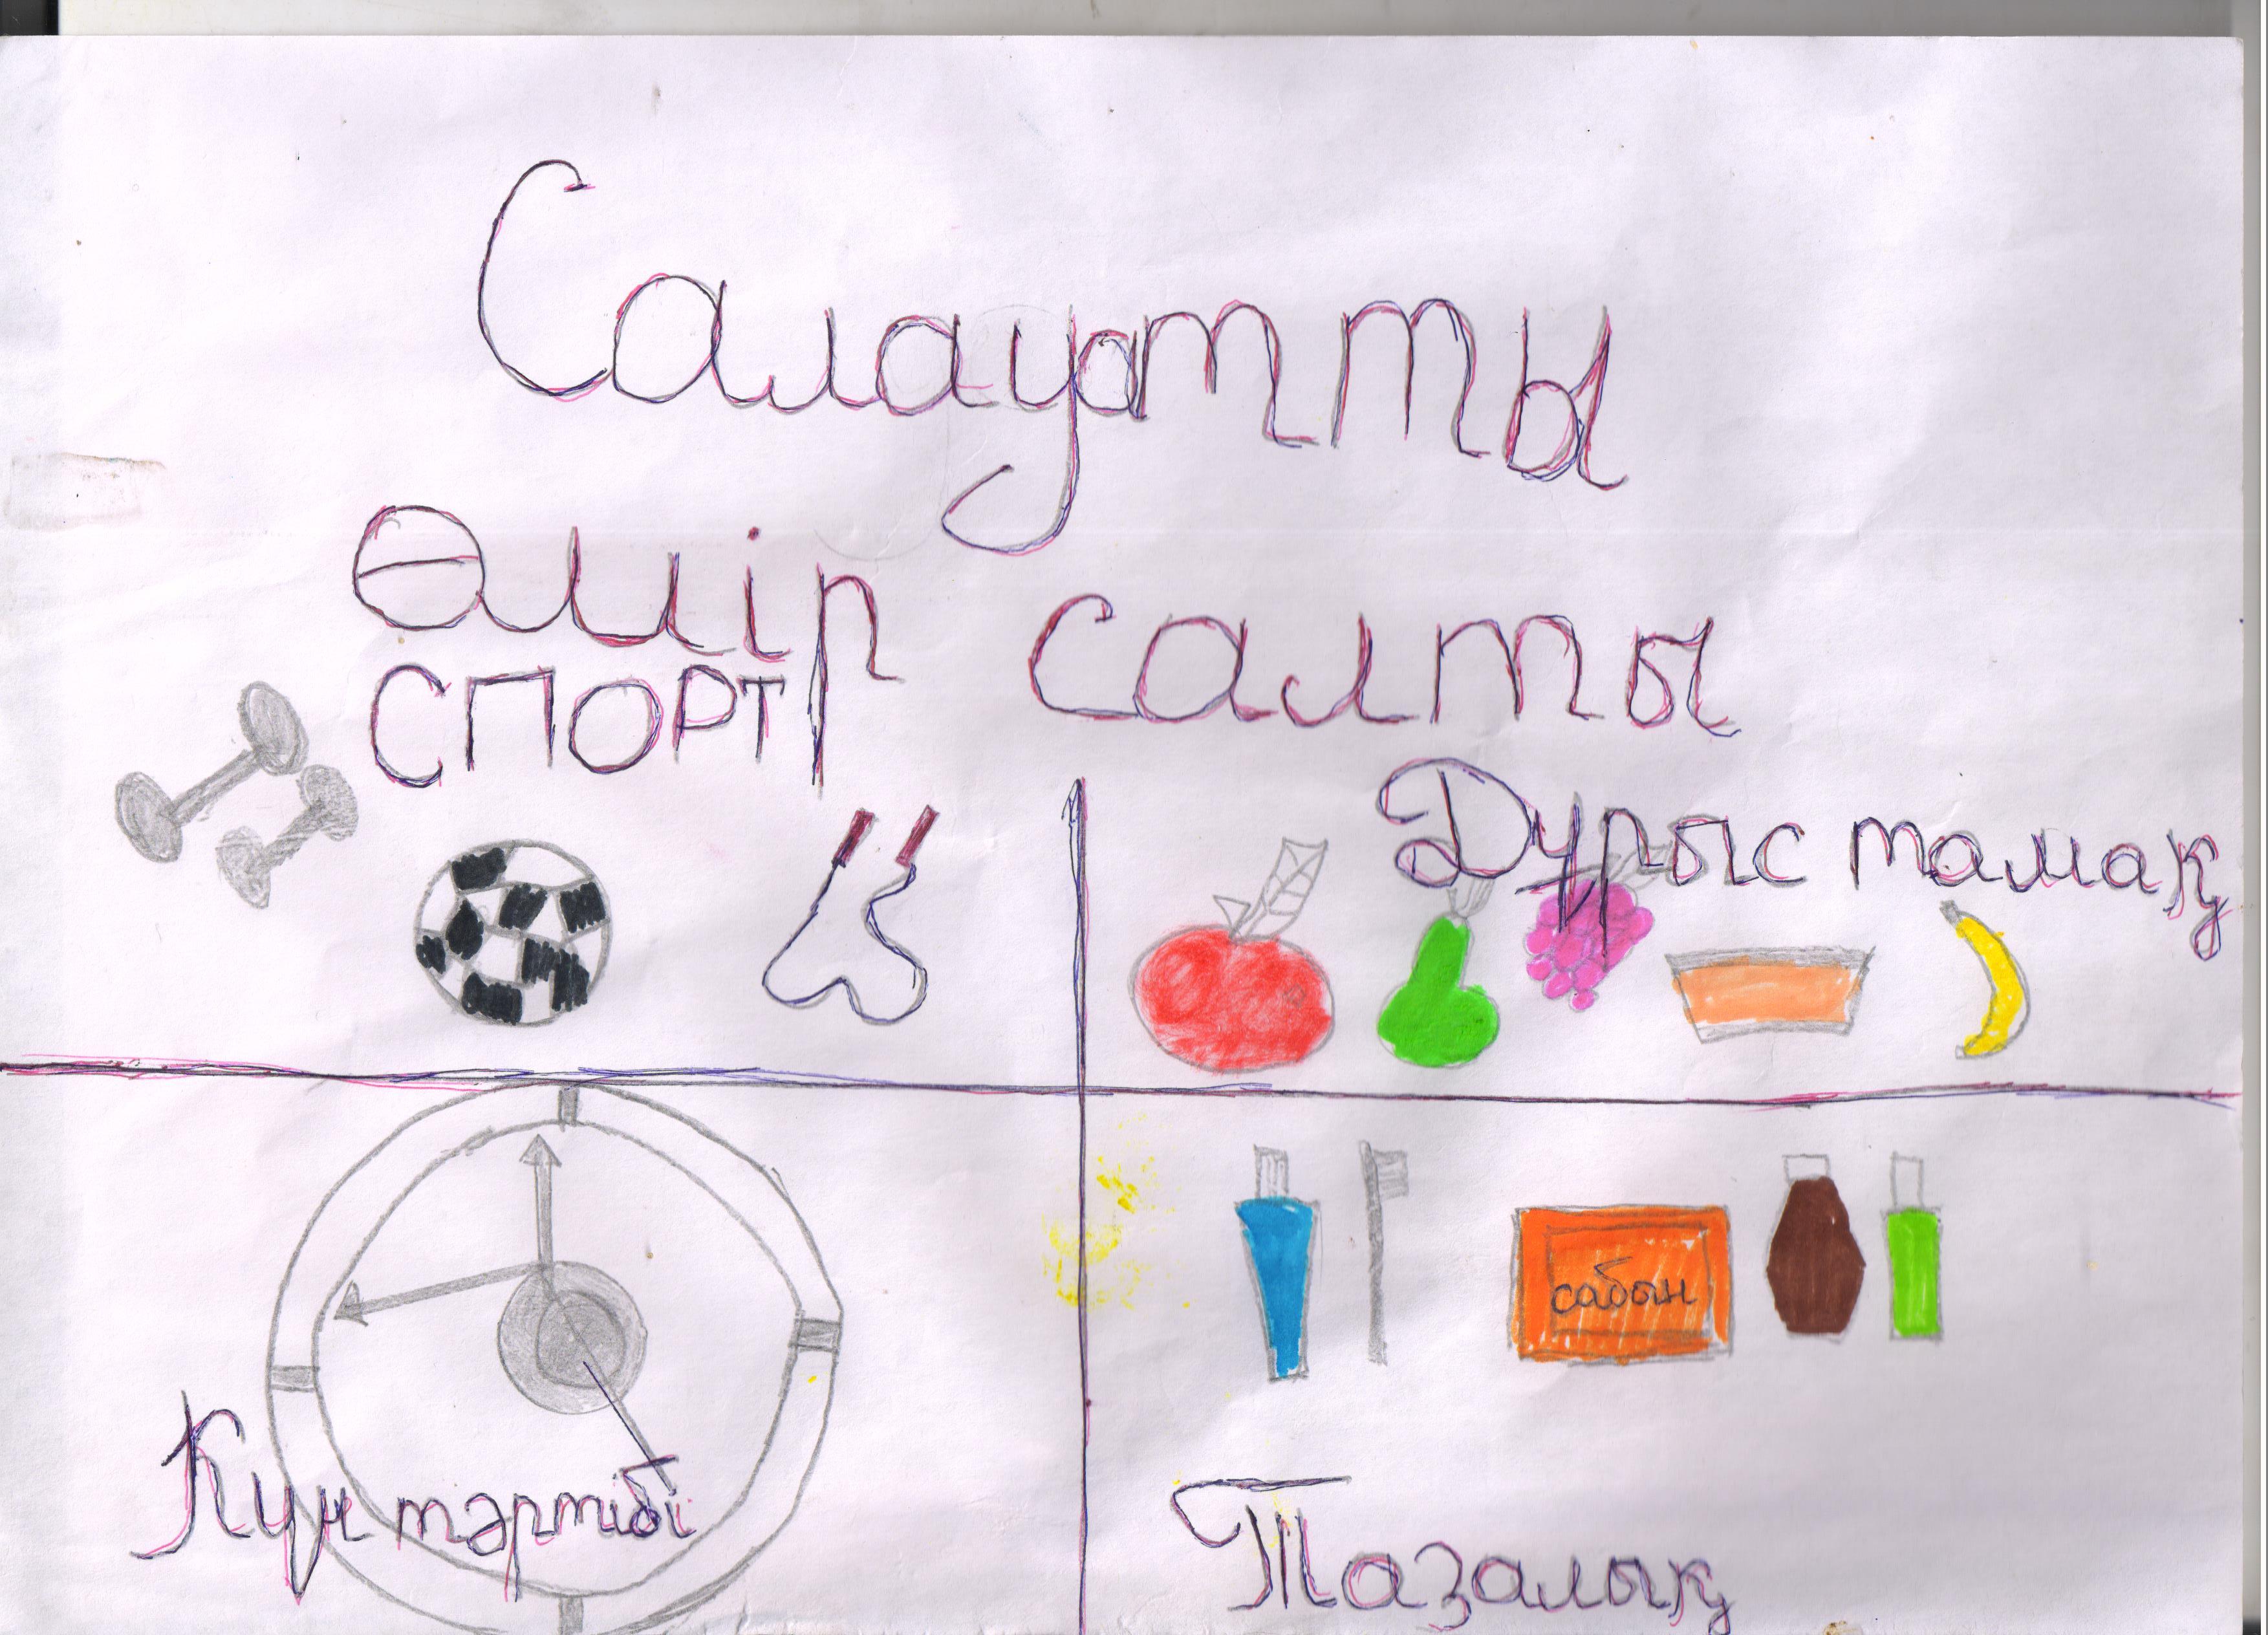 Салауатты
Өмір салты
СПОРТ
Дұрыс тамақ
сабын
Күн тәртібі
Тазалық